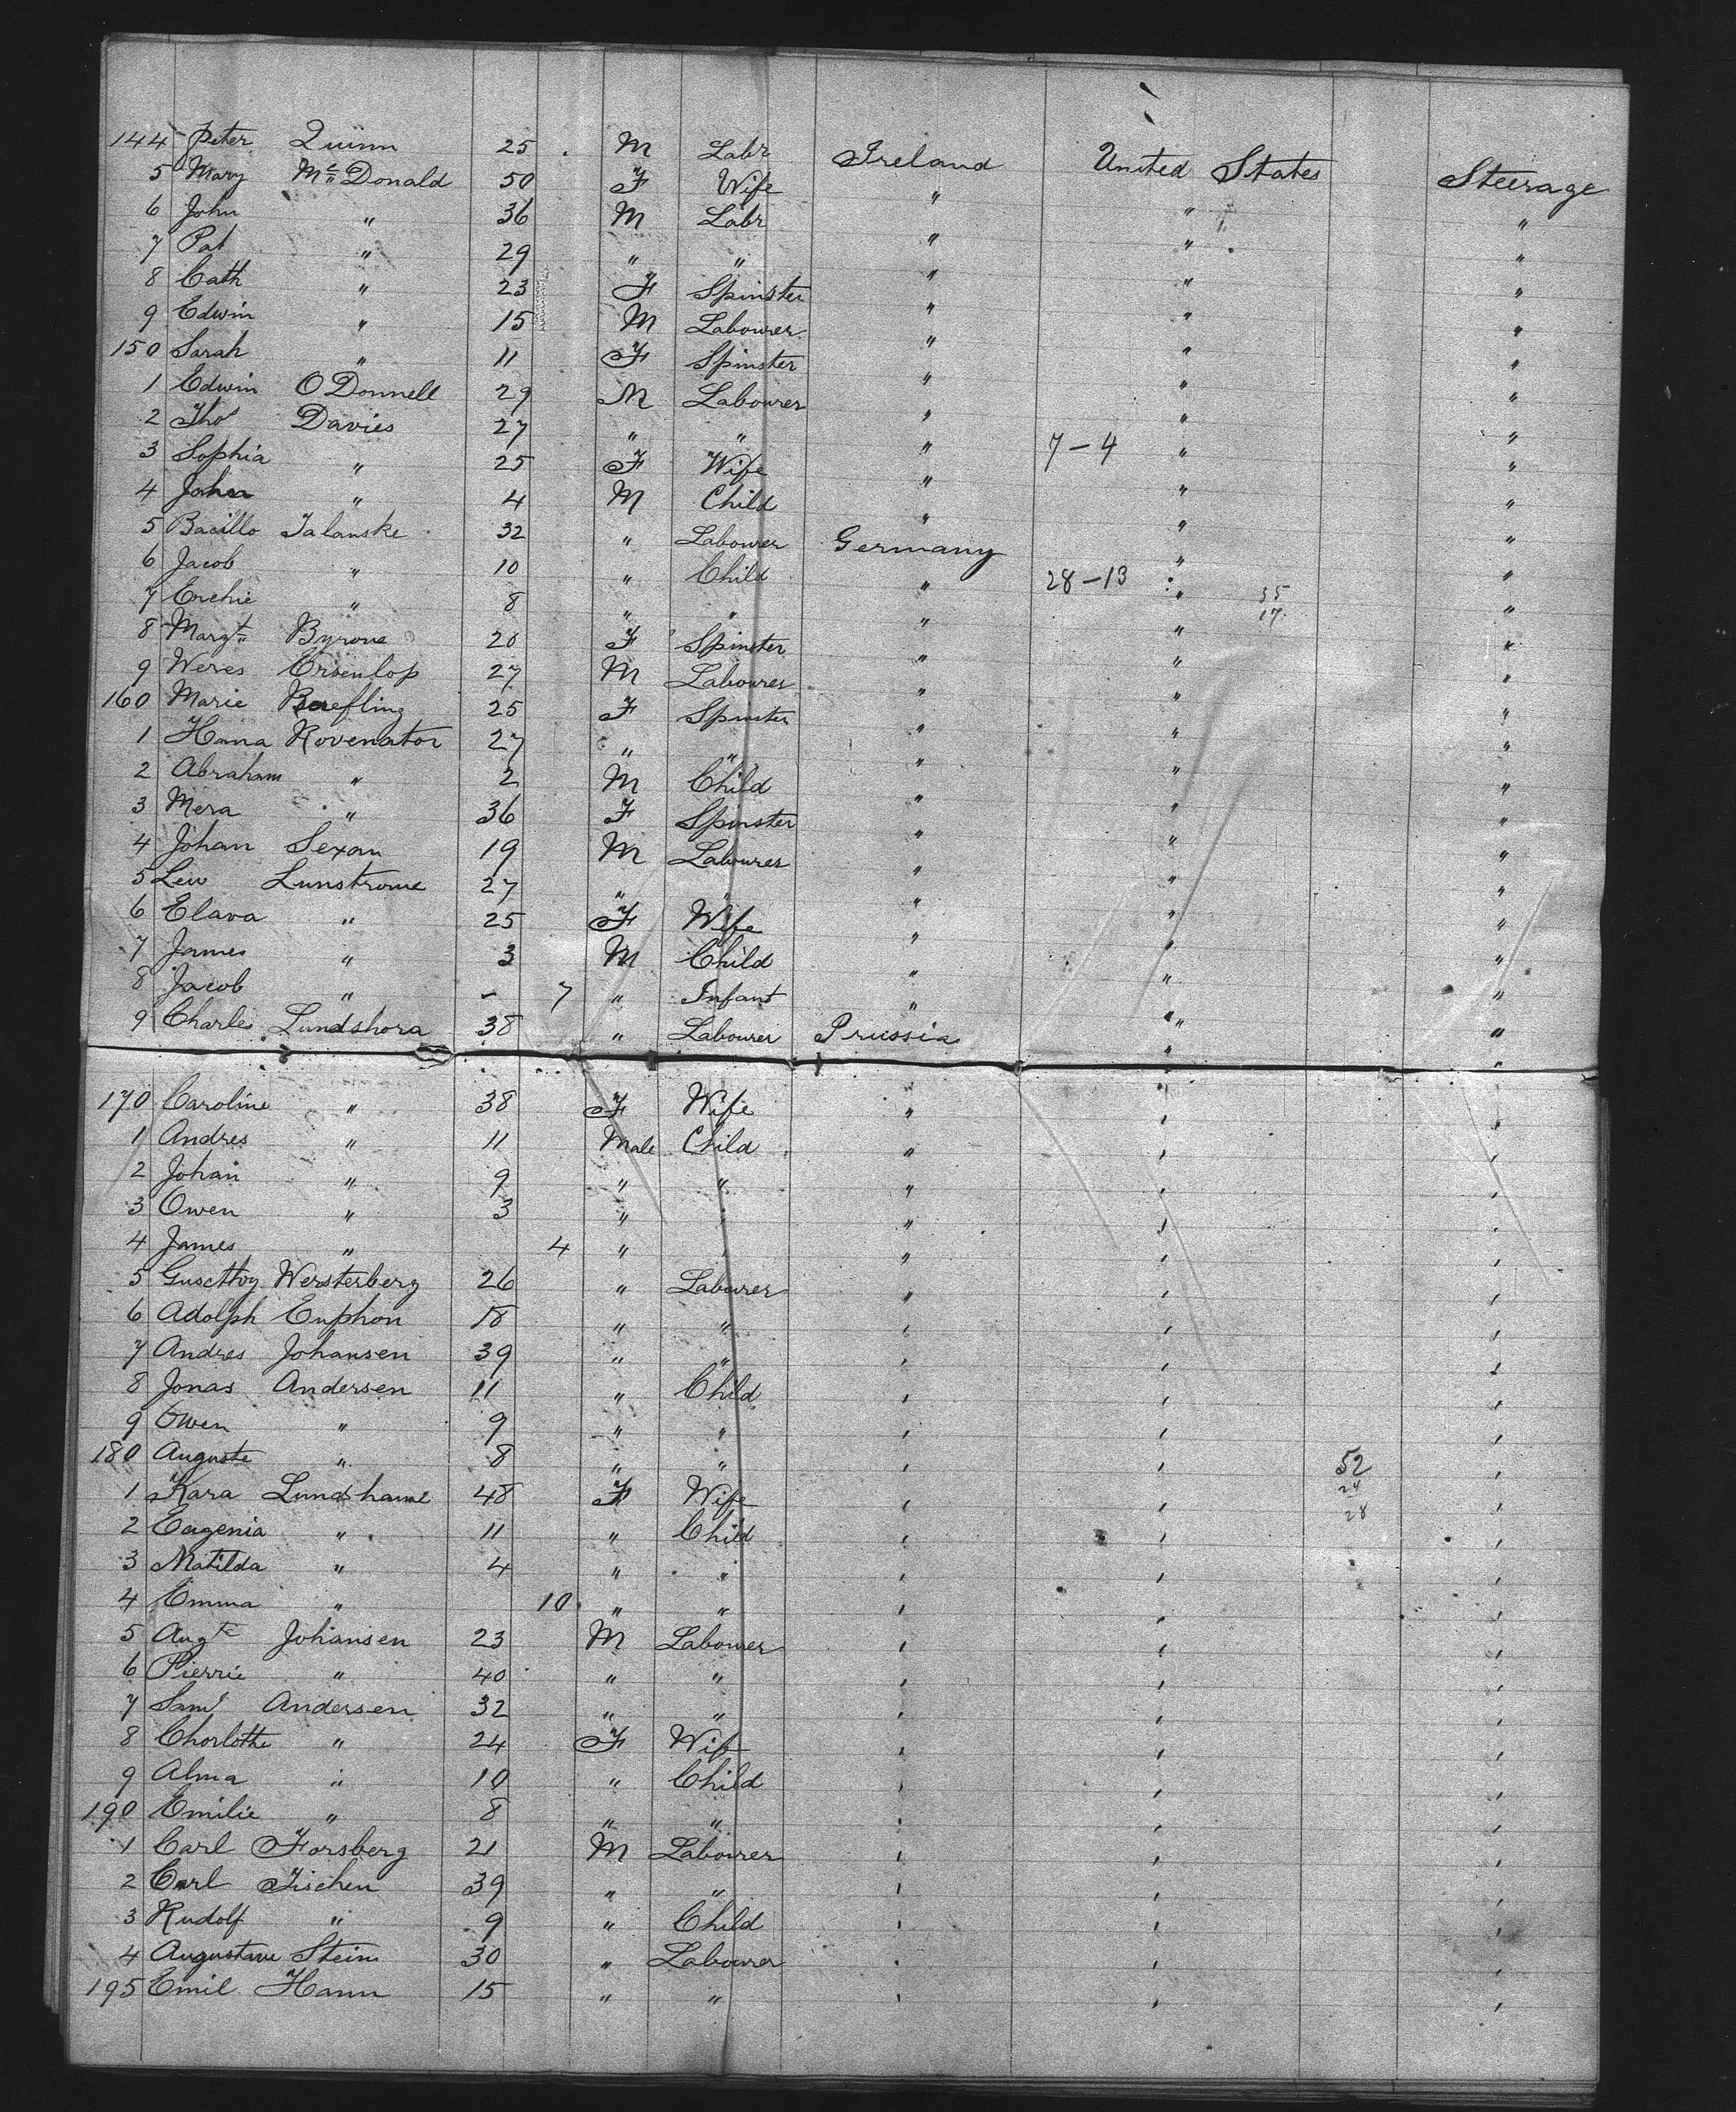 144 Peter Quinn 25 M Labr Ireland United States Steerage
5 Mary McDonald 50 F Wife " " "
6 John " 36 M Labr " " "
7 Pat " 29 " " " " "
8 Cath " 23 F Spinster " " "
9 Edwin " 15 M Labourer " " "
150 Sarah " 11 F Spinster " " "
1 Edwin ODonnell 29 M Labourer " " "
2 Tho Davies 27 " " " 7-4 " "
3 Sophia " 25 F Wife " " "
4 John " 4 M Child " " "
5 Bacillo Jalanske 32 " Labourer Germany " "
6 Jacob " 10 " Child " 28-13 " "
7 Erchie " 8 " " " " 35 17 "
8 Margt Byrone 20 F Spinster " " "
9 Weres Ersenlop 27 M Labourer " " "
160 Marie 25 F Spinster " " "
1 Hana Rovenator 27 " " " " "
2 Abraham " 2 M Child " " "
3 Mera " 36 F Spinster " " "
4 Johan Sexan 19 M Labourer " " "
5 Lew Lunstrome 27 " " " " "
6 Elava " 25 F Wife " " "
7 James " 3 M Child " " "
8 Jacob " - 7 " Infant " " "
9 Charles Lundshora 38 " Labourer Prussia " "
170 Caroline " 38 F Wife " " "
1 Andres " 11 Male Child " " "
2 Johan " 9 " " " " "
3 Owen " 3 " " " " "
4 James " 4 " " " " "
5 Guscttoy Wersterberg 26 " Labourer " " "
6 Adolph Euphon 18 " " " " "
7 Andres Johansen 39 " " " " "
8 Jonas Andersen 11 " Child " " "
9 Owen " 9 " " " " "
180 Auguste " 8 " " " " 52 "
1 Kara Lundhame 48 F Wife " " 24 28 "
2 Eugenia " 11 " Child " " "
3 Matilda " 4 " " " " "
4 Emma " 10 " " " " "
5 Augte Johansen 23 M Labourer " " "
6 Pierrie " 40 " " " " "
7 Saml Andersen 32 " " " " "
8 Chorlothe " 24 F Wife " " "
9 Alma " 10 " Child " " "
190 Emilie " 8 " " " " "
1 Carl Forsberg 21 M Labourer " " "
2 Carl Fischen 39 " " " " "
3 Rudolf " 9 " Child " " "
4 Augustave Stein 30 " Labourer " " "
195 Emil Hann 15 " " " " "